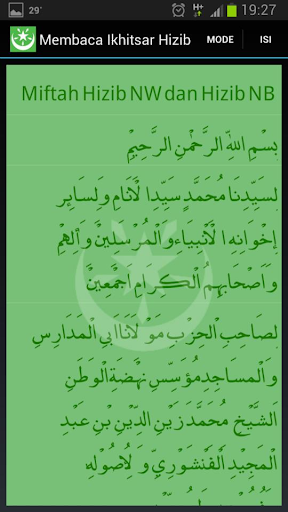 29°
19:27
Membaca Ikhitsar Hizib
MODE
ISI
Miftah Hizib NW dan Hizib NB
بِسْمِ اللهِ الرَّحْمٰنِ الرَّحِيْمِ
لِسَيِّدِنَا مُحَمَّدٍ سَيِّدِ الْأَنَامِ وَلِسَايِرِ
إِخْوَانِهِ الْأَنْبِيَاءِ وَالْمُرْسَلِيْنَ وَآلِهِمْ
وَاَصْحَابِهِمُ الْكِرَامِ اَجْمَعِيْنَ
لِصَاحِبِ الْحِزْبِ مَوْلَانَا اَبِي الْمَدَارِسِ
وَالْمَسَاجِدِ مُؤَسِّسِ نَهْضَةِ الْوَطَنِ
الشَّيْخِ مُحَمَّدْ زَيْنِ الدِّيْنِ بْنِ عَبْدِ
الْمَجِيْدِ الْفَنْشُوْرِيِّ وَلِاُصُوْلِهِ